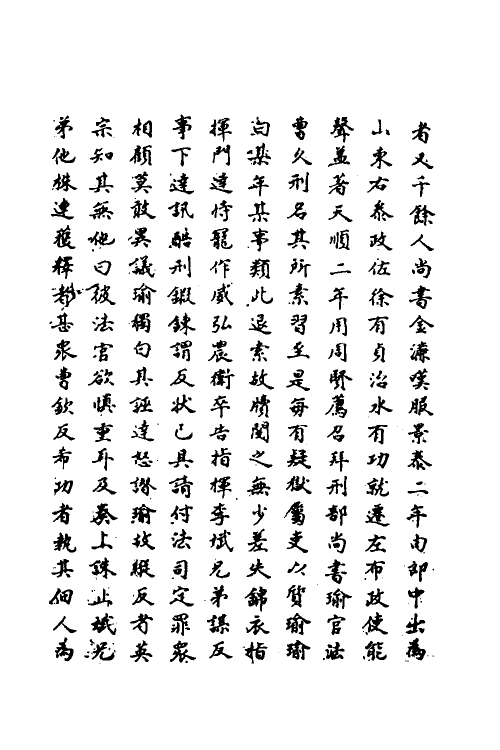 者又千餘人尚書金濂嘆服景泰二年由郎中出為
山東右叅政佐徐有貞治水有功就遷左布政使能
聲益著天順二年用周賢薦召拜刑部尚書瑜官法
曹久刑名其所素習至是每有疑獄屬吏以質瑜瑜
曰某年某事類此退索故牘閱之無少差失錦衣指
揮門達恃寵作威弘農衛卒告指揮李斌兄弟謀反
事下達訊酷刑鍛鍊謂反狀已具請付法司定罪衆
相顧莫敢異議瑜獨白其誣達怒譖瑜故縱反者英
宗知其無他曰彼法官欲慎重耳及奏上誅止斌兄
弟他株連獲釋者甚衆曹欽反希功者執其佃人為